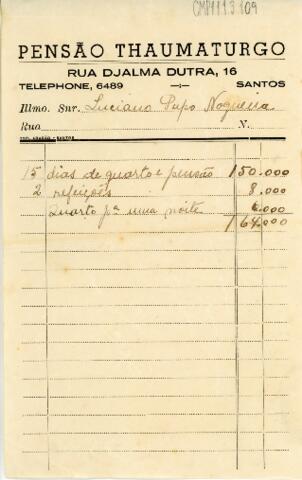 CMP1.1.13.109
PENSÃO THAUMATURGO
RUA DJALMA DUTRA, 16
TELEPHONE, 6489 SANTOS
Illmo. Snr. Luciano Pupo Nogueira
Rua N.
15 dias de quarto e pensão 150.000
2 refeições 8.000
Quarto pª uma noite 6.000
164.000